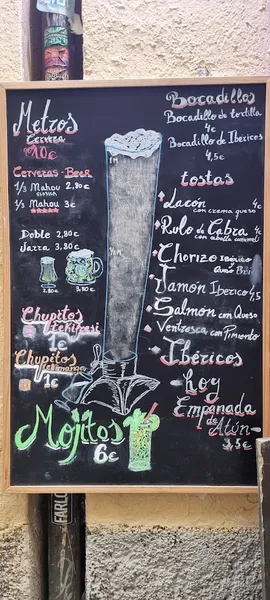 Metros
Cerveza
10€
Cervezas-Beer
1/3 Mahou 2,80€
1/3 Mahou 3€
☆☆☆☆☆
Doble 2,80€
Jarra 3,80€
2,80€
3,80€
Chupitos
1€
Chupitos
1€
Mojitos
6€
1M
½M
Bocadillos
Bocadillo de tortilla
4€
Bocadillo de Ibericos
4,5€
tostas
Lacón
con crema queso
Rulo de Cabra 4€
con cebolla caramel
Chorizo Ibérico
Queso Brie
Jamón Iberico 4,5
Salmón con Queso
Ventresca con Pimiento
Ibéricos
-hoy-
Empanada
de Atún-
3,5€
FARLO